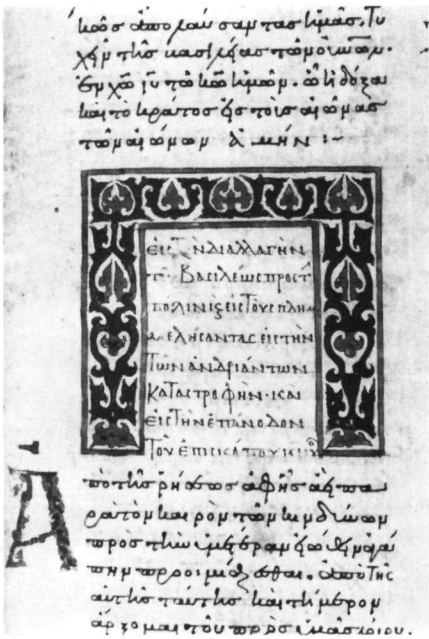 ἀπολαύσαντας ἡμᾶς, τυ
χεῖν τῆς βασιλείας τῶν οὐνῶν.
ἐν χῶ ἰῦ τῶ κῶ ἡμῶν. ὧ ἡ δόξα
καὶ τὸ κράτος εἰς τοὺς αἰῶνας
τῶν αἰώνων ἀμήν :~
εἰς τὴν διαλλαγὴν
τοῦ βασιλέως πρὸς τ
πόλιν εἰς τοὺς πλημ
μελήσαντας εἰς τὴν
τῶν ἀνδριάντων
καταστροφήν· καὶ
εἰς τὴν ἐπάνοδον
τοῦ ἐπισκόπου
Ἀπὸ τῆς ῥήσεως ἀφ' ἧς ἀεὶ πα
ρὰ τὸν καιρὸν τῶν κινδύνων
πρὸς τὴν ὑμετέραν εἰώθειν ἀγά
πην προοιμιάζεσθαι. ἀπὸ τῆς
αὐτῆς ταύτης καὶ τήμερον
ἄρξομαι τοῦ πρὸς ὑμᾶς λόγου.